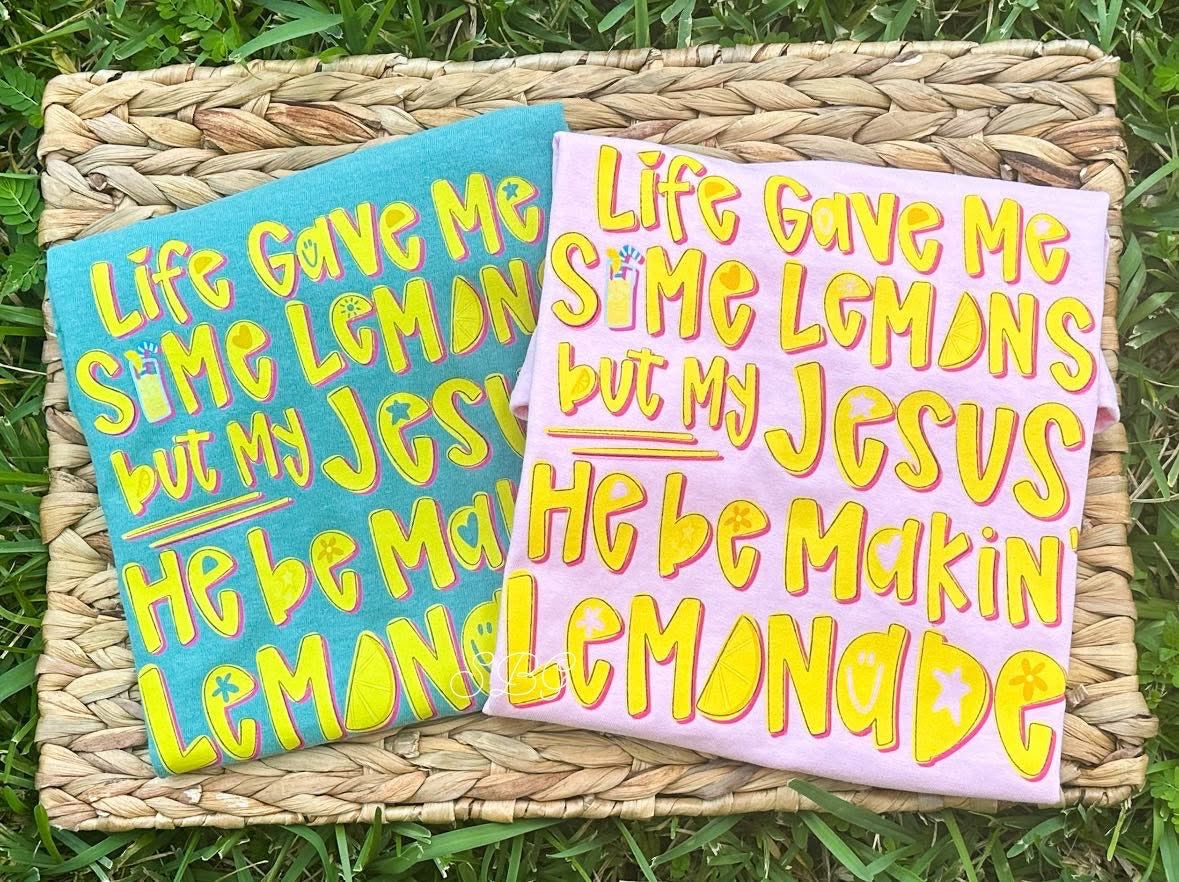 Life Gave Me
SoMe LeMONS
but My Jesu
He be Mak
LeMONa
Life Gave Me
SoMe LeMONS
but My JesUS
He be MakiN'
LeMONaDe